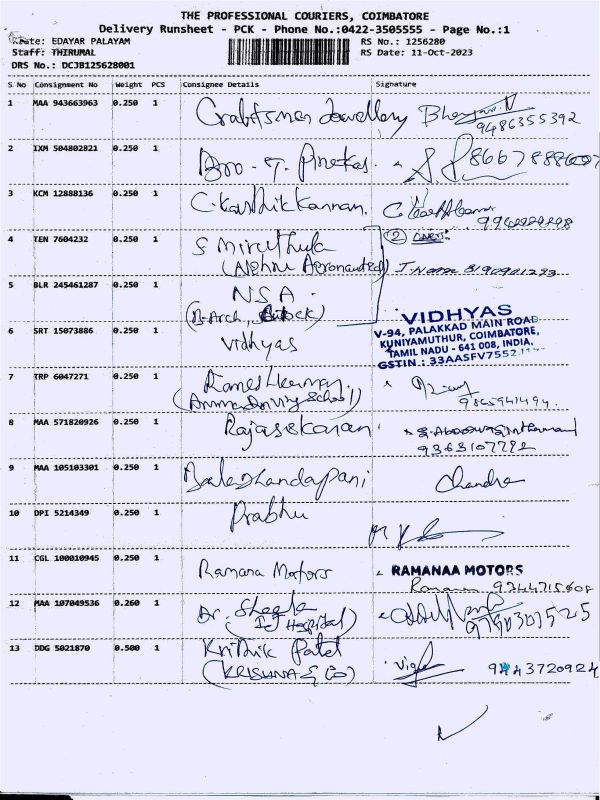 THE PROFESSIONAL COURIERS, COIMBATORE
Delivery Runsheet - PCK - Phone No.:0422-3505555 - Page No.:1
Route: EDAYAR PALAYAM RS No.: 1256280
Staff: THIRUMAL RS Date: 11-Oct-2023
DRS No.: DCJB125628001
S No Consignment No Weight PCS Consignee Details Signature
1 MAA 943663963 0.250 1 Craftsmen Jewellery
9486355392
2 IXM 504802821 0.250 1
3 KCM 12888136 0.250 1 C. Karthik Kannan.
4 TEN 7604232 0.250 1 S Miruthula 2
(Nehru Aeronautics) 8190901283
5 BLR 245461287 0.250 1 NSA.
6 SRT 15073886 0.250 1 Vidhyas
VIDHYAS
V-94, PALAKKAD MAIN ROAD
KUNIYAMUTHUR, COIMBATORE,
TAMIL NADU - 641 008, INDIA.
GSTIN : 33AASFV7552
7 TRP 6047271 0.250 1 Rameshkumar
(Amma Driving School) 9865941494
8 MAA 571820926 0.250 1 Rajasekaran
9363107792
9 MAA 105103301 0.250 1 Baladhandapani Chandra
10 DPI 5214349 0.250 1 Prabhu
11 CGL 100010945 0.250 1 Ramana Motors RAMANAA MOTORS
12 MAA 107049536 0.260 1 Dr. Sheela
Hospital)
13 DDG 5021870 0.500 1 Krithik Patel
(KRISHNA & CO) 9443720924